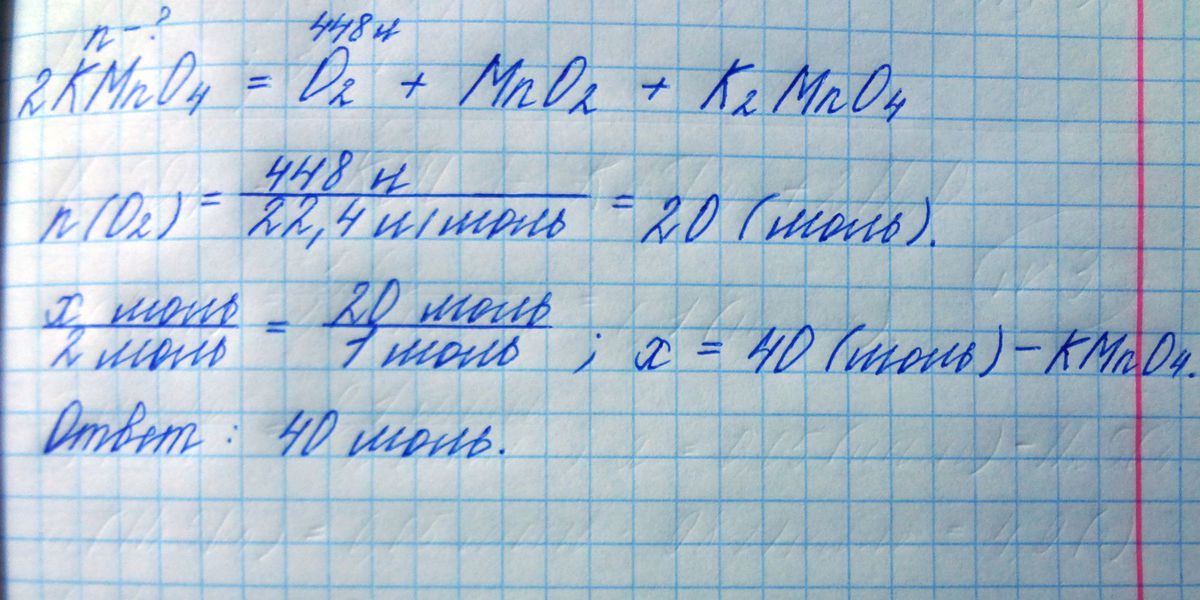 n - ? 448 л
2KMnO₄ = O₂ + MnO₂ + K₂MnO₄
n(O₂) = 448 л / 22,4 л/моль = 20 (моль).
x моль / 2 моль = 20 моль / 1 моль ; x = 40 (моль) - KMnO₄.
Ответ : 40 моль.